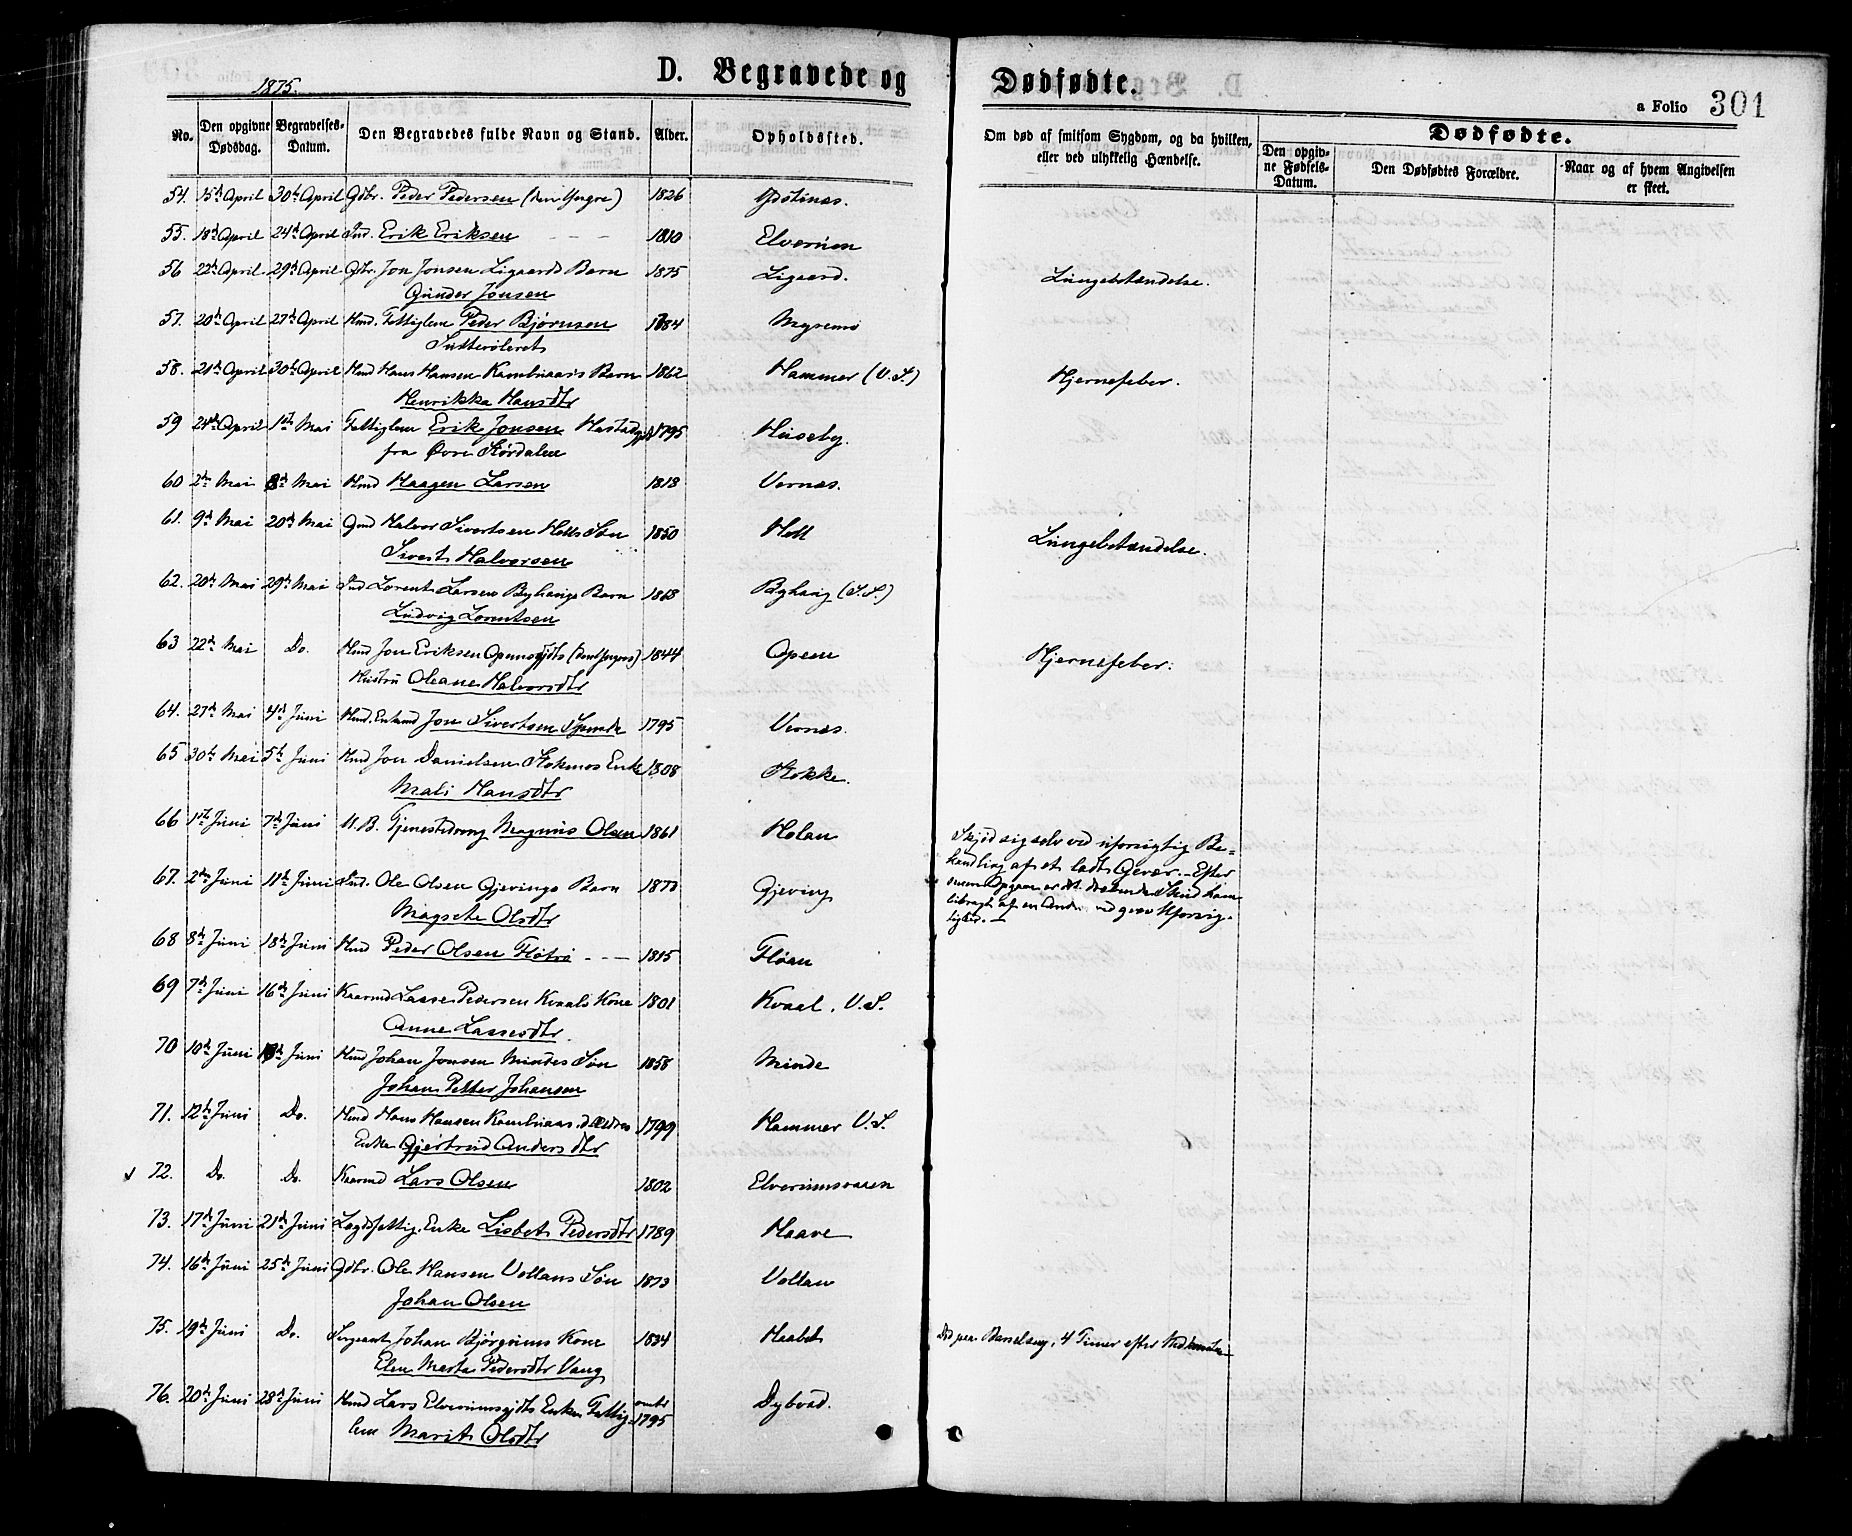 1875.
D. Begravede og Dødfødte.
a Folio 301
No.
Den opgivne Dødsdag.
Begravelses-Datum.
Den Begravedes fulde Navn og Stand.
Alder.
Opholdssted.
Om død af smitsom Sygdom, og da hvilken,
eller ved ulykkelig Hændelse.
Dødfødte.
Den opgivne Fødsels-Datum.
Den Dødfødtes Forældre.
Naar og af hvem Angivelsen
er skeet.
54. 15de April 30te April Gdbr. Peder Pedersen (den Yngre) 1826
55. 18de April 24de April Ind. Erik Eriksen 1810
56 22de April 29de April Gdbr. Jon Jonsen Ligaards Barn 1875 Ligaard. Lungebetændelse.
Gunder Jonsen
57. 20de April 27de April Hmd. Fattiglem Peder Bjørnsen 1784 Myremo
58. 21de April 30te April Hmd Hans Hansen Barn 1862 Hammer (V.S.) Hjernefeber.
Henrikka Hansdtr
59 24de April 1ste Mai Fattiglem Erik Jonsen 1795 Huseby.
fra Øvre Størdalen
60 2den Mai 8de Mai Hmd Haagen Larsen 1818 Vernes.
61. 9de Mai 20de Mai Gmd Halvor Sivertsen Hells Søn 1850 Hell Lungebetændelse.
Sivert Halvorsen
62. 20de Mai 29de Mai Ind Lorents Larsens Byhaugs Barn 1868 Byhaug (S.S.)
Ludvig Lorentsen
63 22de Mai Do. Hmd Jon Eriksen 1844 Opeen Hjernefeber.
Hustru Oleane Halvorsdtr
64. 27de Mai 4de Juni Hmd. Enkemd Jon Sivertsen 1795 Vernes.
65 30te Mai 5te Juni Hmd Jon Danielsen Stokmos Enke 1808 Stokke.
Mali Hansdtr
66 1ste Juni 7de Juni U. B. Tjenestedreng Magnus Olsen 1861 Holan Skjød sig selv ved uforsigtig Be=
handling af et ladt Gevær. – Efter
67. 2den Juni 11te Juni Ind. Ole Olsen Gjevings Barn Gjeving
Magrete Olsdtr
68 8de Juni 18de Juni Hmd Peder Olsen 1815 Fløan
69 7de Juni 16de Juni Kaarmd Lasse Pedersen Kvaals Kone 1801 Kvaal. V.S.
Anne Lassesdtr.
70 10de Juni Juni Hmd Johan Jonsen Mindes Søn 1858 Minde
Johan Petter Johansen
71. 12te Juni Do. Hmd Hans Hansen d. Ældres 1799 Hammer V.S.
Enke Gjertrud Andersdtr
72. Do. Do. Kaarmd Lars Olsen 1802
73. 17de Juni 21de Juni Lægdsfattig. Enke Lisbet Pedersdtr 1789 Haave
74. 16de Juni 25de Juni Gdbr. Ole Hansen Vollans Søn 1873 Vollan
Johan Olsen
75. 19de Juni Do. Sergeant Johan Bjørgums Kone 1834 Død paa Barselseng, 4 Timer efter Nedkomsten
Elen Marta Pedersdtr Vang
76. 20de Juni 28de Juni Hmd Lars Enke Fattig= omtr 1795 Dybvad.
lem Marit Olsdtr